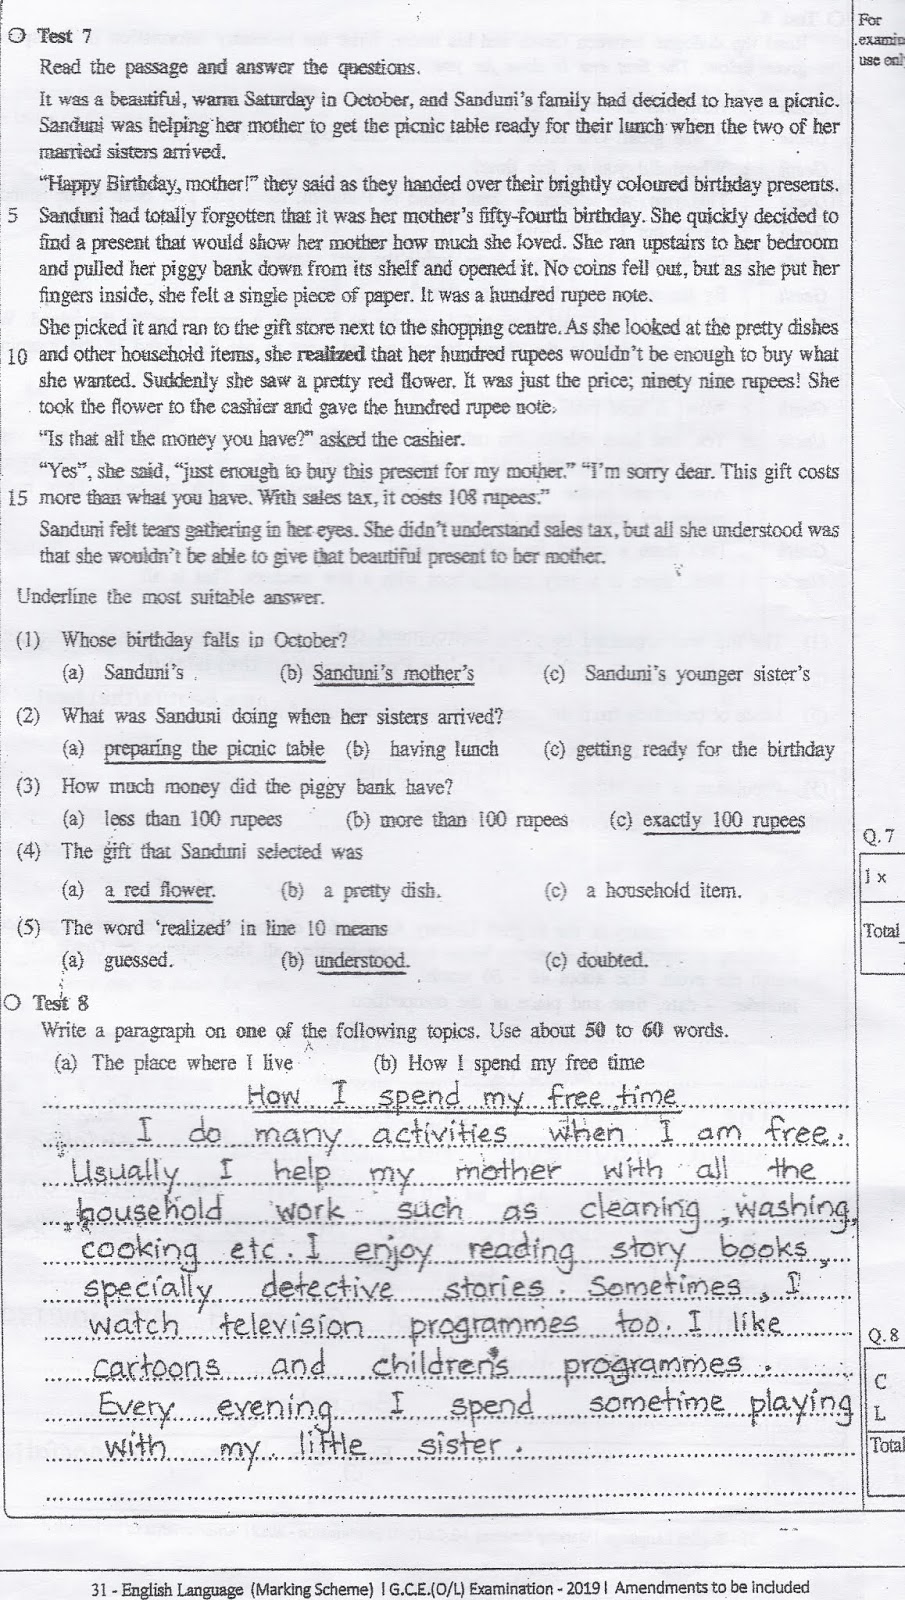 For
examin
use onl
Test 7
Read the passage and answer the questions.
It was a beautiful, warm Saturday in October, and Sanduni's family had decided to have a picnic.
Sanduni was helping her mother to get the picnic table ready for their lunch when the two of her
married sisters arrived.
"Happy Birthday, mother!" they said as they handed over their brightly coloured birthday presents.
5 Sanduni had totally forgotten that it was her mother's fifty-fourth birthday. She quickly decided to
find a present that would show her mother how much she loved. She ran upstairs to her bedroom
and pulled her piggy bank down from its shelf and opened it. No coins fell out, but as she put her
fingers inside, she felt a single piece of paper. It was a hundred rupee note.
She picked it and ran to the gift store next to the shopping centre. As she looked at the pretty dishes
10 and other household items, she realized that her hundred rupees wouldn't be enough to buy what
she wanted. Suddenly she saw a pretty red flower. It was just the price; ninety nine rupees! She
took the flower to the cashier and gave the hundred rupee note.
"Is that all the money you have?" asked the cashier.
"Yes", she said, "just enough to buy this present for my mother." "I'm sorry dear. This gift costs
15 more than what you have. With sales tax, it costs 108 rupees."
Sanduni felt tears gathering in her eyes. She didn't understand sales tax, but all she understood was
that she wouldn't be able to give that beautiful present to her mother.
Underline the most suitable answer.
(1) Whose birthday falls in October?
(a) Sanduni's (b) Sanduni's mother's (c) Sanduni's younger sister's
(2) What was Sanduni doing when her sisters arrived?
(a) preparing the picnic table (b) having lunch (c) getting ready for the birthday
(3) How much money did the piggy bank have?
(a) less than 100 rupees (b) more than 100 rupees (c) exactly 100 rupees
(4) The gift that Sanduni selected was
(a) a red flower. (b) a pretty dish. (c) a household item.
(5) The word 'realized' in line 10 means
(a) guessed. (b) understood. (c) doubted.
Q.7
1 x
Total
Test 8
Write a paragraph on one of the following topics. Use about 50 to 60 words.
(a) The place where I live (b) How I spend my free time
How I spend my free time
I do many activities when I am free.
Usually I help my mother with all the
household work such as cleaning, washing,
cooking etc. I enjoy reading story books,
specially detective stories. Sometimes, I
watch television programmes too. I like
cartoons and children's programmes.
Every evening I spend sometime playing
with my little sister.
Q.8
C
L
Total
31 - English Language (Marking Scheme) | G.C.E.(O/L) Examination - 2019 | Amendments to be included